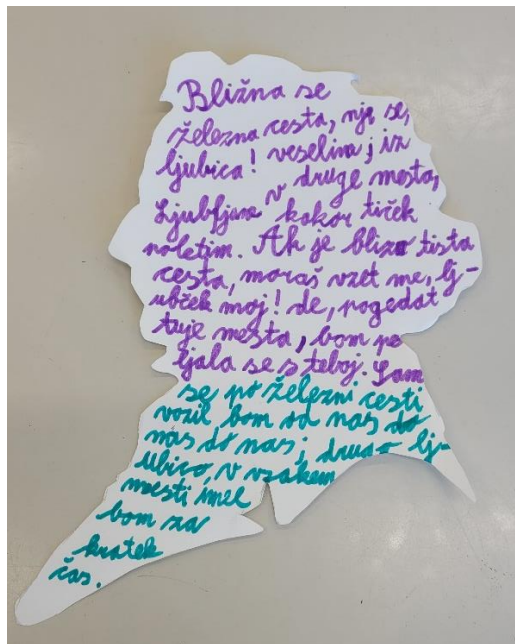 Bližna se
železna cesta, nje se,
ljubica! veselim; iz
v druge mesta,
Ljubljane kakor tiček
poletim. Ak je blizo tista
cesta, moraš vzet me, lj-
ubček moj! de, pogledat
tuje mesta, bom pe
ljala se s teboj. Sam
se po železni cesti
vozil bom od nas do
nas do nas; drugo lj-
ubico, v vsakem
mesti imel
bom za
kratek
čas.